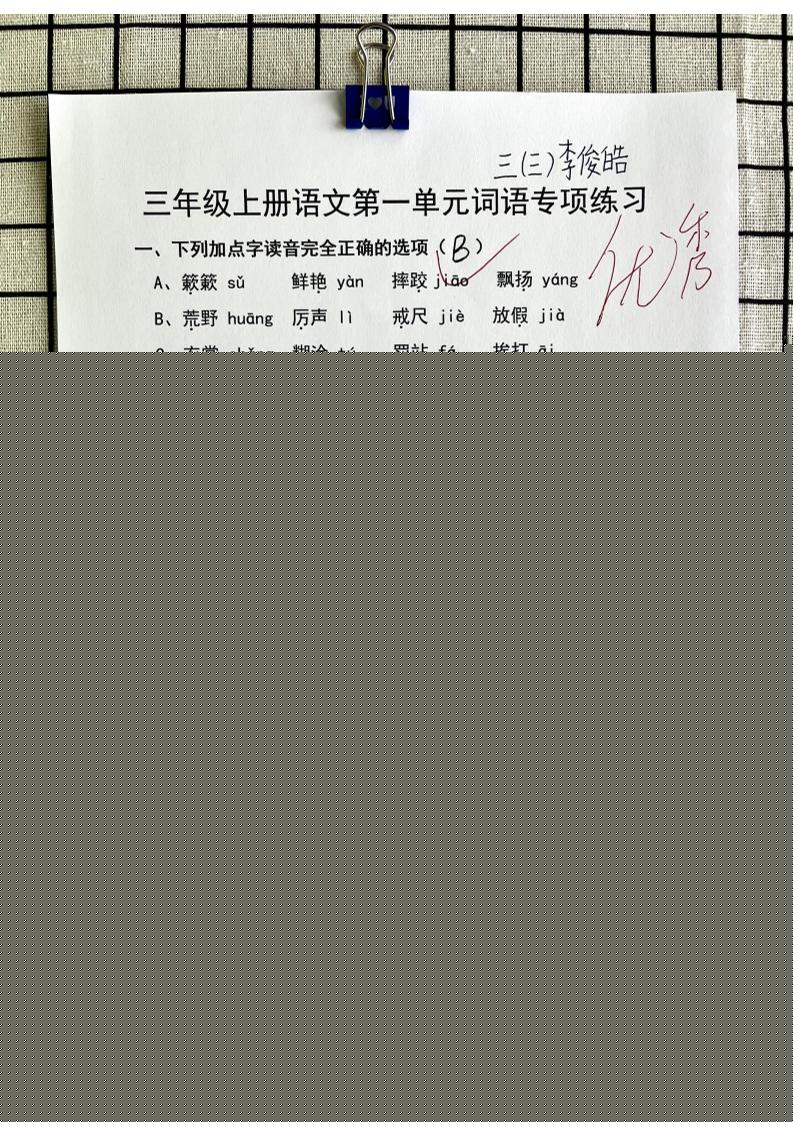 三(三)李俊皓
三年级上册语文第一单元词语专项练习
一、下列加点字读音完全正确的选项（B）
优秀
A、簌簌 sǔ 鲜艳 yàn 摔跤 jiāo 飘扬 yáng
B、荒野 huāng 厉声 lì 戒尺 jiè 放假 jià